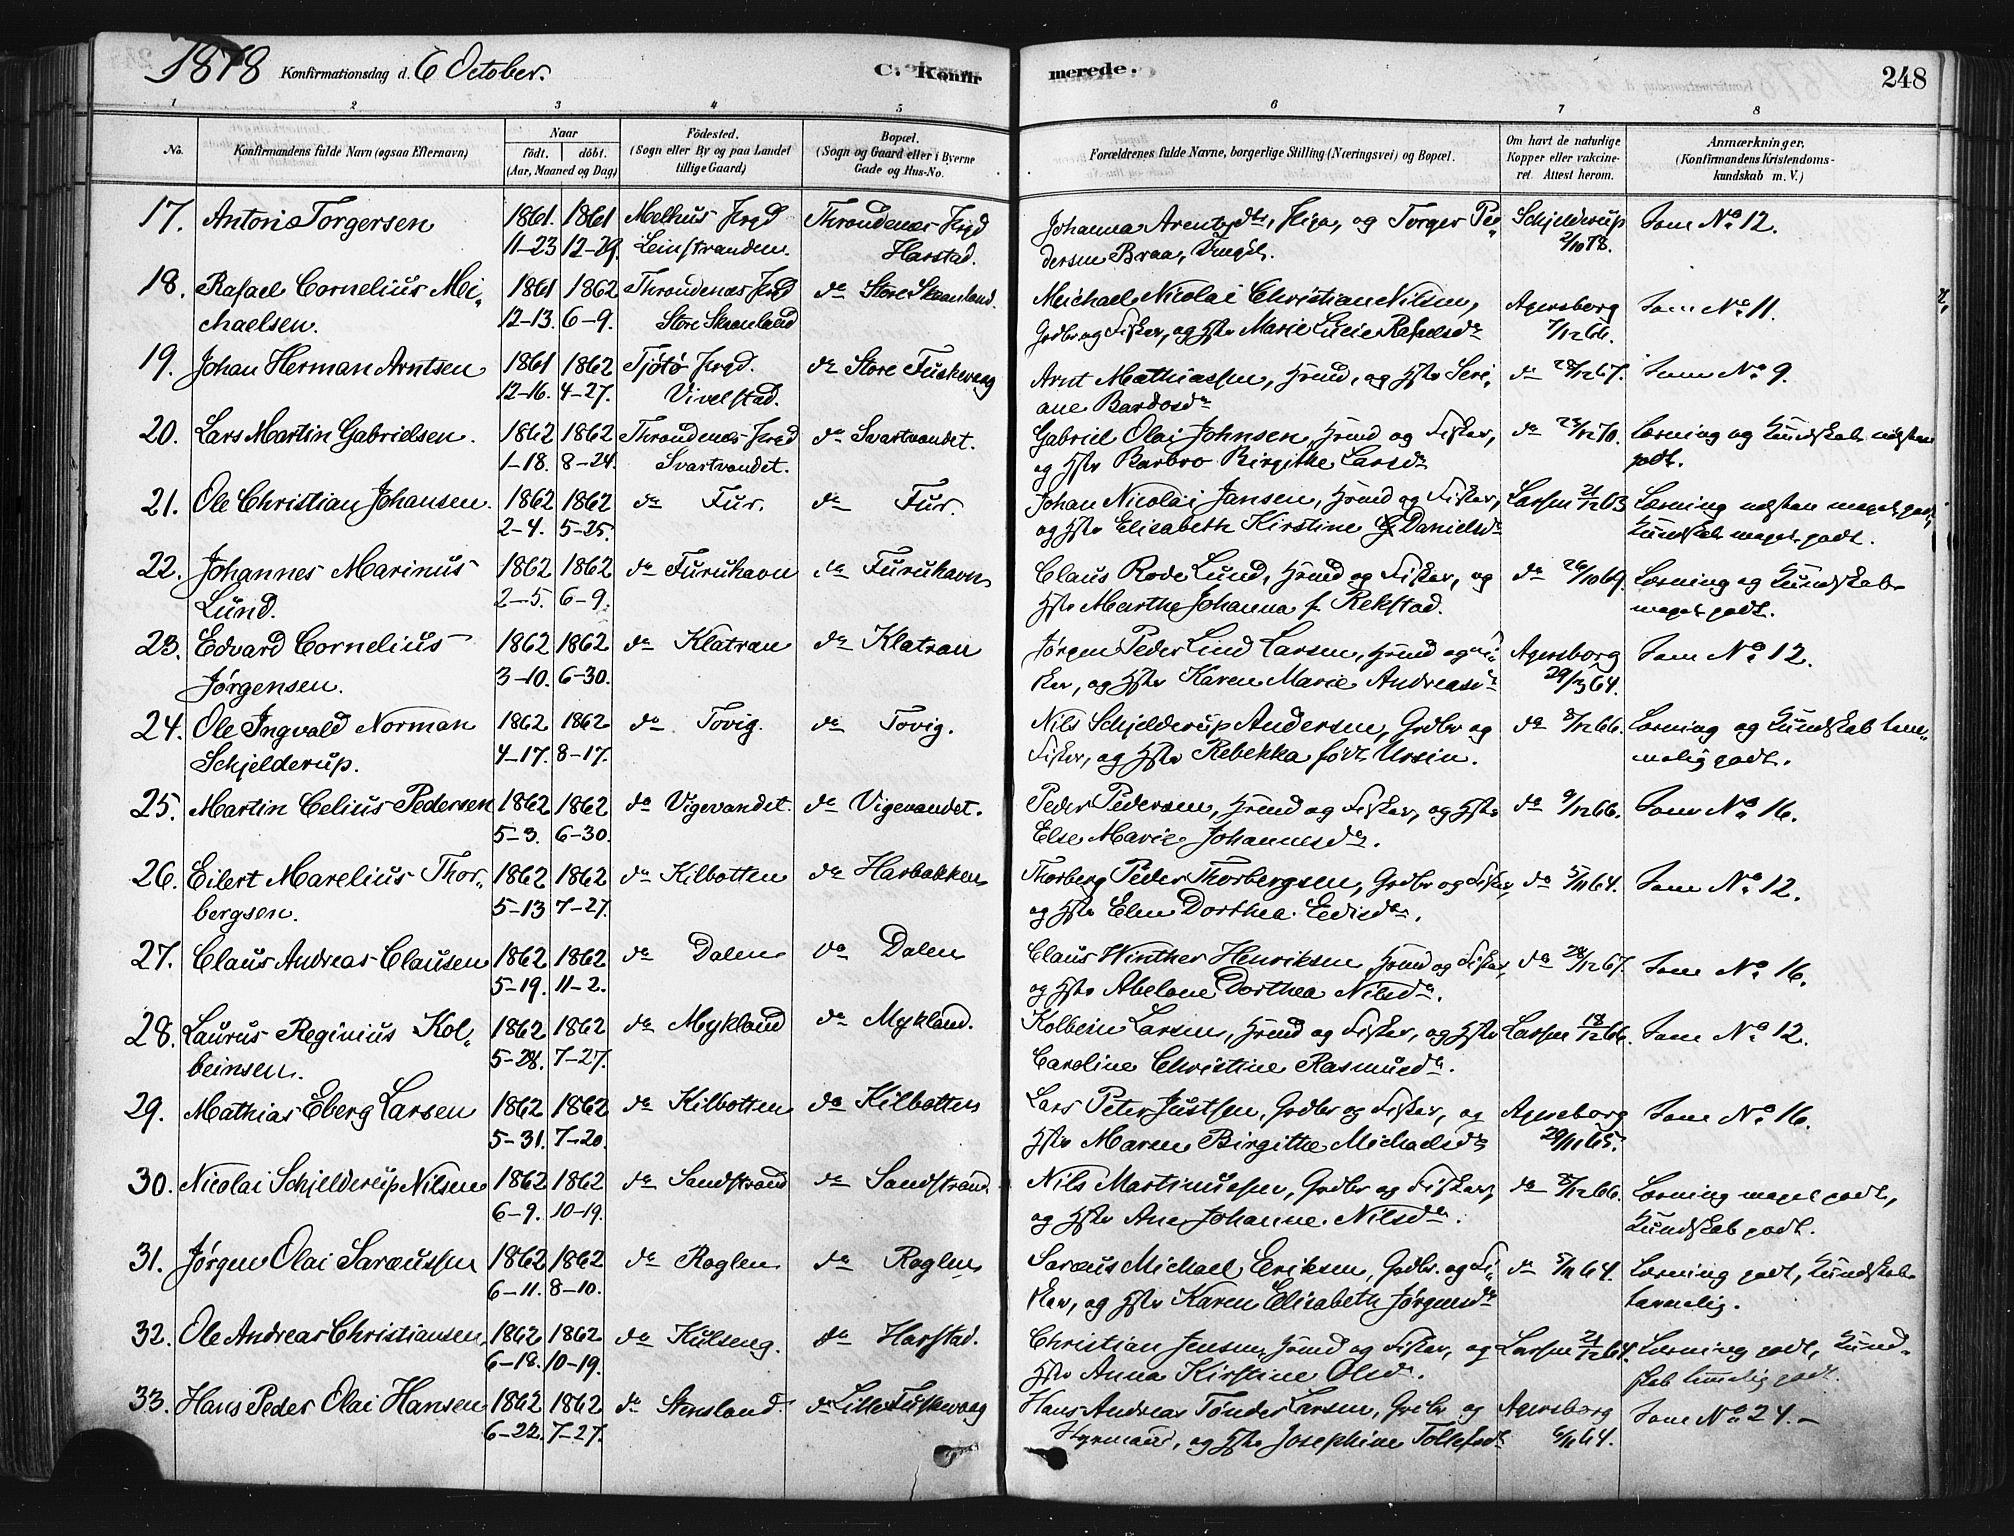 1878 Konfirmationsdag d. 6 October. C. Konfir merede. 248
1 2 3 4 5 6 7 8
No. Konfirmandens fulde Navn (ogsaa Efternavn) Naar født. døbt. (Aar, Maaned og Dag) Fødested. (Sogn eller By og paa Landet tillige Gaard) Bopæl. (Sogn og Gaard eller i Byerne Gade og Hus-No. Forældrenes fulde Navne, borgerlige Stilling (Næringsvei) og Bopæl. Om havt de naturlige Kopper eller vakcineret. Attest herom. Anmærkninger, (Konfirmandens Kristendomskundskab m. V.)
17. Anton Torgersen 1861 1861 Melhus Prgd Throndenæs Prgd Johanna Arentsdtr, Pige, og Torger Pe- Schjelderup Som No 12.
11-23 12-29. Leinstranden. Harstad. dersen Braa, Ungk. 2/10 78.
18. Rafael Cornelius Mi- 1861 1862 Throndenæs Prgd do Store Skaanland. Michael Nicolai Christian Nilsen, Agersborg Som No 11.
chaelsen. 12-13. 6-9. Store Skaanland Grdbr og Fisker, og Hstr Marie Lucie Rafaelsdr 7/12 66.
19. Johan Herman Arntsen 1861 1862 Tjøtø Prgd. do Store Fuskevaag Arnt Mathiassen, Hsmd, og Hstr Seri- do 28/12 67. Som No 9.
12-16. 4-27. Vivelstad. ane Bardosdr
20. Lars Martin Gabrielsen. 1862 1862 Throndenæs Prgd do Svartvandet. Gabriel Olai Johnsen, Hsmd og Fisker, do 23/12 70. Læsning og Kundskab næsten
1-18. 8-24. Svartvandet. og Hstr Barbro Birgithe Larsdr godt.
21. Ole Christian Johansen. 1862 1862 do Fur. do Fur. Johan Nicolai Jansen, Hsmd og Fisker, Larssen 21/12 63 Læsning næsten meget godt,
2-4. 5-25. og Hstr Elisabeth Kirstine Danielsdr Kundskab meget godt.
22. Johannes Marinus 1862 1862 do Furuhavn do Furuhavn Claus Rode Lund, Hsmd og Fisker, og do 26/10 69. Læsning og Kundskab
Lund. 2-5. 6-9. Hstr Marthe Johanna f. Rekstad. meget godt.
23. Edvard Cornelius 1862 1862 do Klatran do Klatran Jørgen Peder Lind Larsen, Hsmd og Fi- Agersborg Som No 12.
Jørgensen. 3-10. 6-30. sker, og Hstr Karen Marie Andreasdr 64.
24. Ole Ingvald Norman 1862 1862 do Tovig. do Tovig. Nils Schjelderup Andersen, Grdbr og do 8/12 66. Læsning og Kundskab tem-
Schjelderup. 4-17. 8-17. Fisker, og Hstr Rebekka født Ursin. melig godt.
25. Martin Celius Pedersen 1862 1862 do Vigevandet. do Vigevandet. Peder Pedersen, Hsmd og Fisker, og Hstr do 9/12 66. Som No 16.
5-3. 6-30. Else Marie Johannesdr.
26. Eilert Marelius Thor- 1862 1862 do Kilbotten do Harbakken Thorberg Peder Thorbergsen, Grdbr og Fisker, do 5/11 64. Som No 12.
bergsen. 5-13 7-27. og Hstr Elen Dorthea Eedisdr.
27. Claus Andreas Clausen 1862 1862 do Dalen do Dalen Claus Winther Henriksen, Hsmd og Fisker, do 28/12 67. Som No 16.
5-19. 11-2. og Hstr Abelone Dorthea Nilsdr.
28. Laurus Reginius Kol- 1862 1862 do Mykland do Mykland. Kolbein Larsen, Hsmd og Fisker, og Hstr Larssen 18/12 66. Som No 12.
beinsen. 5-28. 7-27. Caroline Christine Rasmusdr.
29. Mathias Eberg Larsen 1862 1862 do Kilbotten do Kilbotten Lars Peter Justsen, Grdbr og Fisker, og Agersborg Som No 16.
5-31. 7-20. Hstr Maren Birgitte Michaelsdr 29/11 65.
30. Nicolai Schjelderup Nilsen 1862 1862 do Sandstrand do Sandstrand. Nils Martinussen, Grdbr og Fisker, do 8/12 66. Læsning meget godt,
6-9. 10-19. og Hstr Ane Johanne Nilsdr. Kundskab godt.
31. Jørgen Olai Saræussen 1862 1862 do Roglen do Roglen Saræus Michael Eriksen, Grdbr. og Fi- do 5/11 64. Læsning godt, Kundskab
6-11. 8-10. sker, og Hstr Karen Elisabeth Jørgensdr temmelig.
32. Ole Andreas Christiansen. 1862 1862 do Kulseng. do Harstad. Christian Jensen, Hsmd og Fisker, og Larssen 21/12 64. Læsning godt, Kund-
6-18. 10-19. Hstr Anna Kirstine Olsdr. skab temmelig godt.
33. Hans Peder Olai Hansen 1862 1862 do Stensland. do Lille Fuskevaag Hans Andreas Tønder Larsen, Grdbr og Agersborg Som No 24.-
6-22. 7-27. Hyrmand, og Hstr Josephine Tollefsdr 6/11 64.